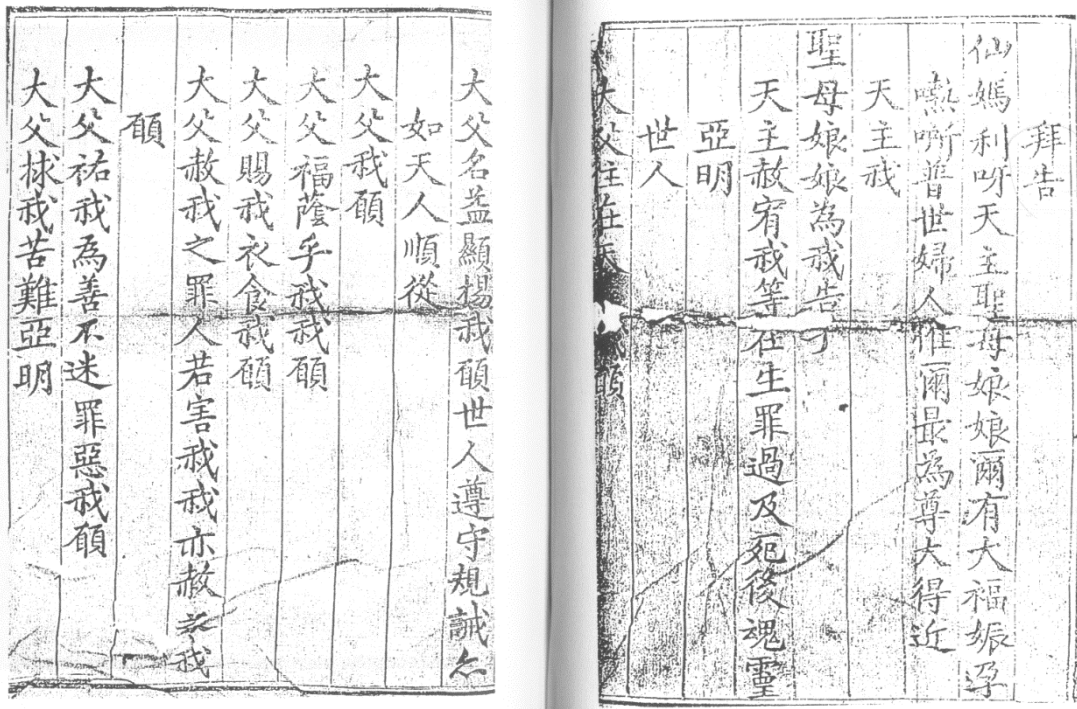 拜告
仙媽利呀天主聖母娘娘爾有大福娠孕
嘶普世婦人惟爾最為尊大得近
天主我
聖母娘娘為我告于
天主赦宥我等在生罪過及死後魂靈
亞明
世人
大父住在天我願
大父名益顯揚我願世人遵守規誡亦
如天人順從
大父我願
大父福蔭乎我我願
大父賜我衣食我願
大父赦我之罪人若害我我亦赦之我
願
大父祐我為善不迷罪惡我願
大父捄我苦難亞明